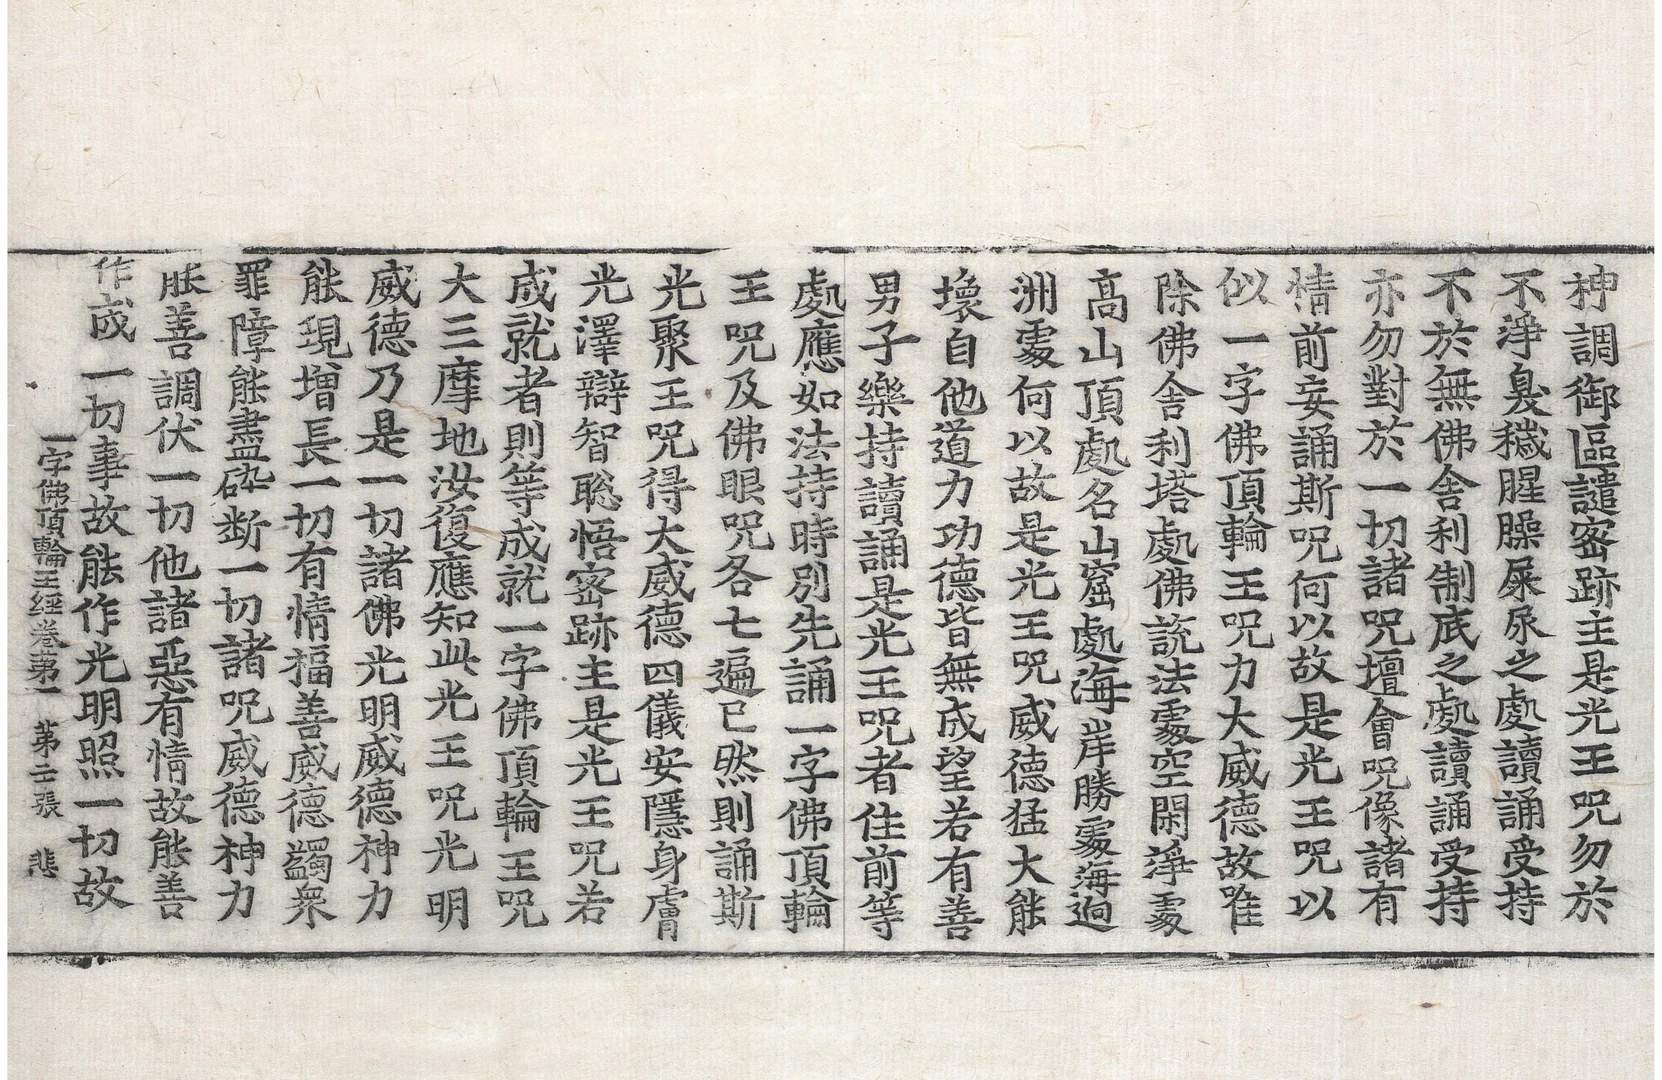 神調御區譴密跡主是光王呪勿於
不淨臭穢腥臊屎尿之處讀誦受持
不於無佛舍利制底之處讀誦受持
亦勿對於一切諸呪壇會呪像諸有
情前妄誦斯呪何以故是光王呪以
似一字佛頂輪王呪力大威德故唯
除佛舍利塔處佛說法處空閑淨處
高山頂處名山窟處海岸勝處海迥
洲處何以故是光王呪威德猛大能
壞自他道力功德皆無成望若有善
男子樂持讀誦是光王呪者住前等
處應如法持時別先誦一字佛頂輪
王呪及佛眼呪各七遍已然則誦斯
光聚王呪得大威德四儀安隱身膚
光澤辯智聡悟密跡主是光王呪若
成就者則等成就一字佛頂輪王呪
大三摩地汝復應知此光王呪光明
威德乃是一切諸佛光明威德神力
能現增長一切有情福善威德蠲衆
罪障能盡砕断一切諸呪威德神力
能善調伏一切他諸惡有情故能善
作成一切事故能作光明照一切故
一字佛頂輪王經卷第一 第二張 悲